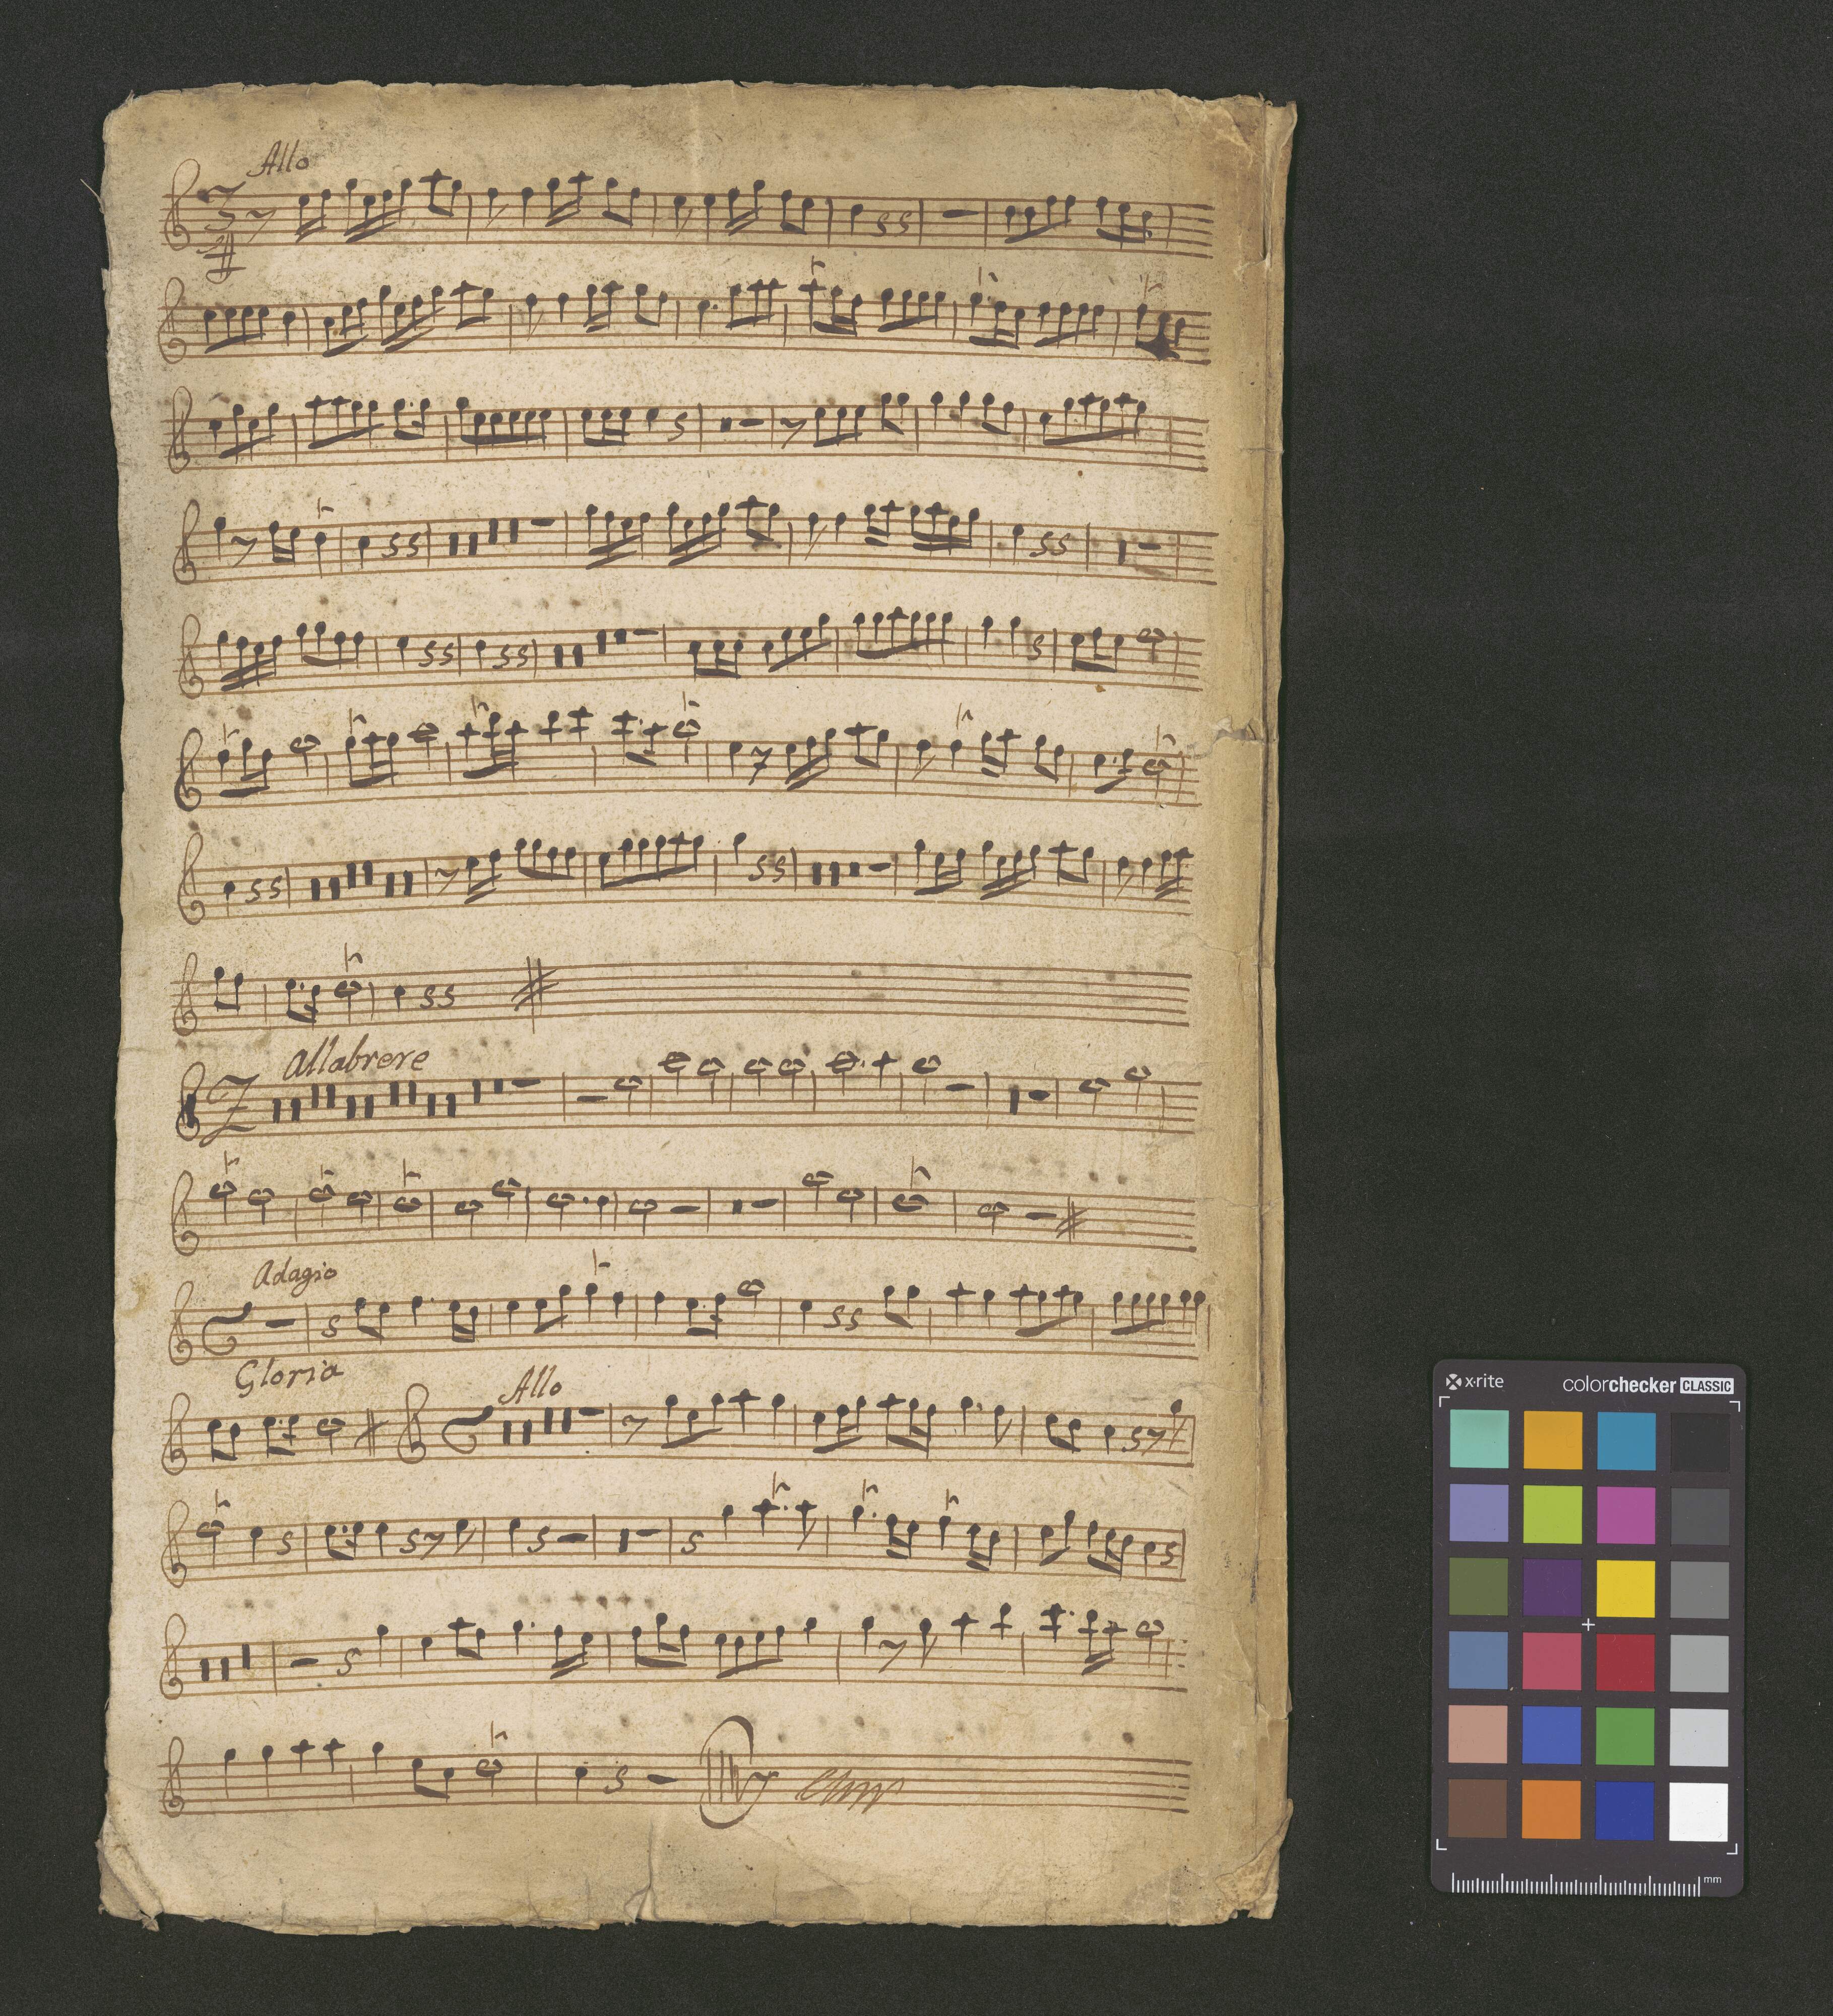 Allo
Allabreve
Adagio
Gloria
Allo
x·rite
colorchecker CLASSIC
mm